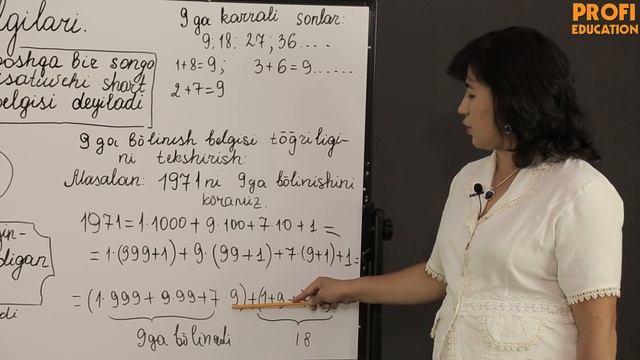 PROFI
EDUCATION
lgilari.
boshga bir songa
isatuvchi shart
belgisi deyiladi
9 ga karrali sonlar:
9; 18; 27; 36....
1+8=9; 3+6=9......
2+7=9
9 ga bõlinish belgisi tõğriligi-
ni tekshirish:
Masalan: 1971 ni 9ga bõlinishini
kõramiz.
1971=1·1000+9·100+7·10+1=
=1·(999+1)+9·(99+1)+7·(9+1)+1=
=(1·999+9·99+7·9)+(1+9
9ga bõlinadi 18
digan
di